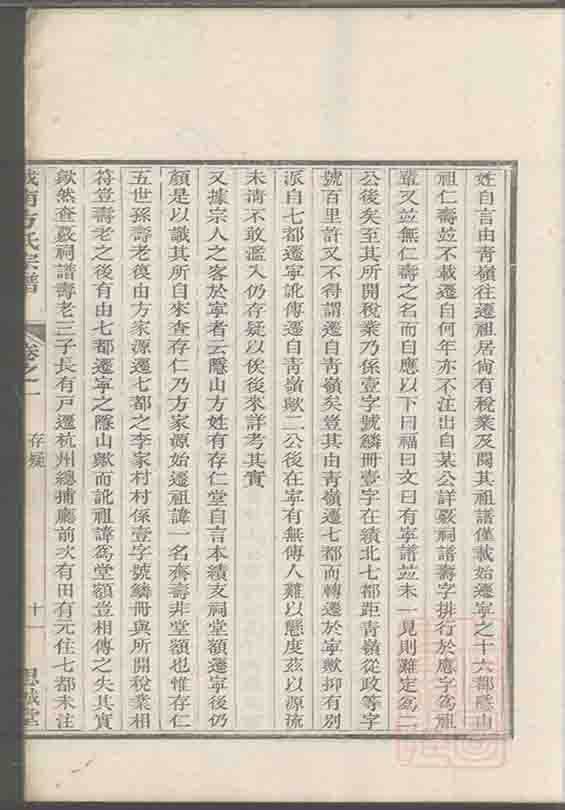 姓自言由靑嶺往遷祖居尙有稅業及閱其祖譜僅載始遷寧之十六都隱山
祖仁壽竝不載遷自何年亦不注出自某公詳敾祠譜壽字排行於應字爲祖
輩又竝無仁壽之名而自應以下曰福曰文曰有寧譜竝未一見則難定爲二
公後矣至其所開稅業乃係壹字號鱗冊壹字在績北七都距靑嶺從政等字
號百里許又不得謂遷自靑嶺矣豈其由靑嶺遷七都而轉遷於寧歟抑有別
派自七都遷寧訛傳遷自靑嶺歟二公後在寧有無傳人難以懸度茲以源流
未淸不敢濫入仍存疑以俟後來詳考其實
又據宗人之客於寧者云隱山方姓有存仁堂自言本績支祠堂額遷寧後仍
顏是以識其所自來查存仁乃方家源始遷祖諱一名齊壽非堂額也惟存仁
五世孫壽老復由方家源遷七都之李家村村係壹字號鱗冊與所開稅業相
符豈壽老之後有由七都遷寧之隱山歟而訛祖諱爲堂額豈相傳之失其實
歟然查敾祠譜壽老三子長有戸遷杭州總捕廳前次有田有元住七都未注
城南方氏宗譜
卷之一
存疑
十一
思誠堂